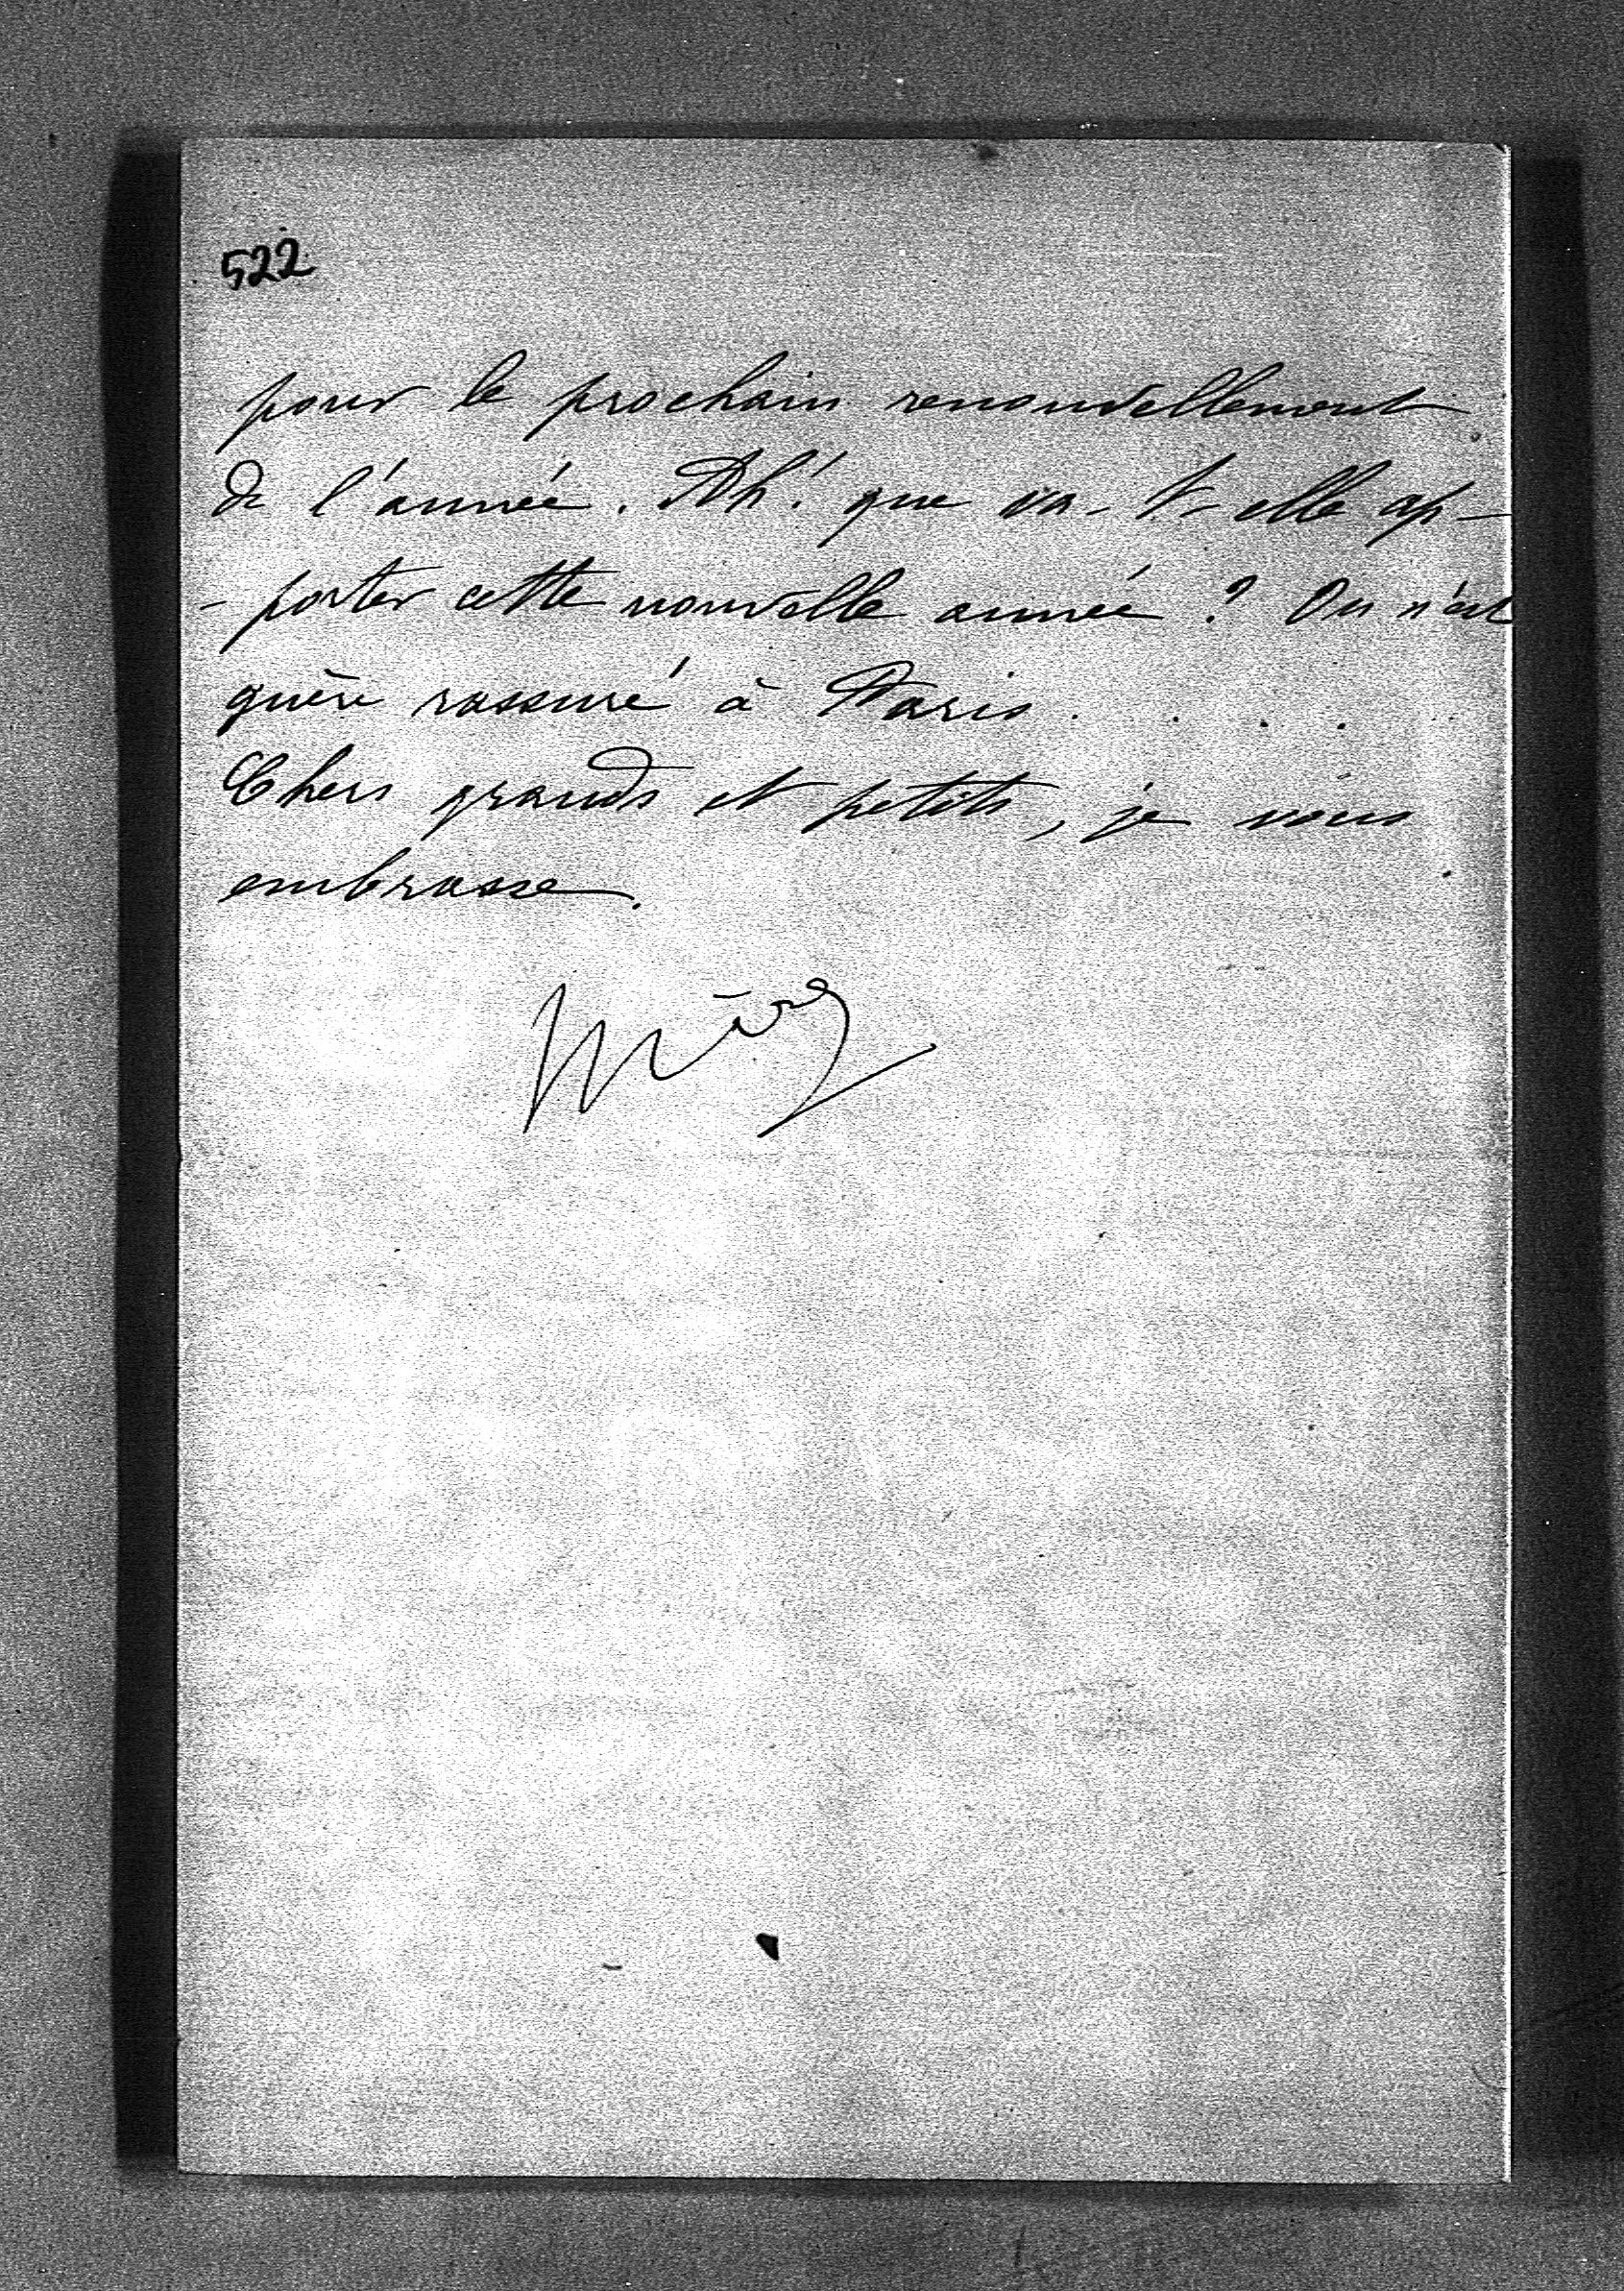 522
pour le prochain renouvellement
de l'année. Ah! que va-t-elle ap-
-porter cette nouvelle année? On n'est
guère rassuré à Paris. . . .
Chers grands et petits, je vous
embrasse.
Mère